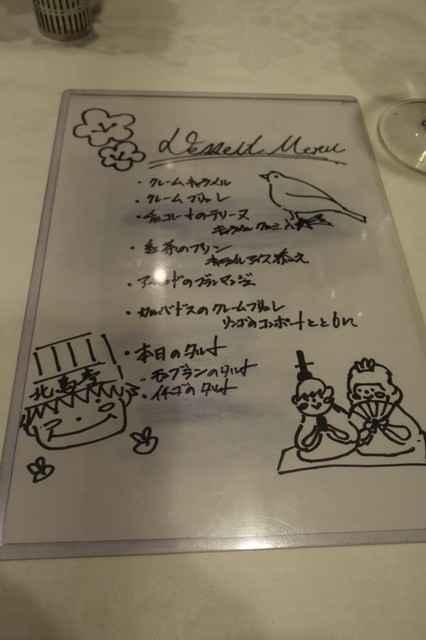 Dessert Menu
・クレームキャラメル
・クレームブリュレ
・チョコレートのテリーヌ
・紅茶のプリン
キャラメルアイス添え
・アーモンドのブランマンジェ
・カルバドスのクレームブリュレ
リンゴのコンポートとともに
・本日のタルト
・モンブランのタルト
・イチゴのタルト